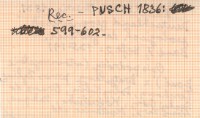 Rec. - PUSCH 1836:
599-602.